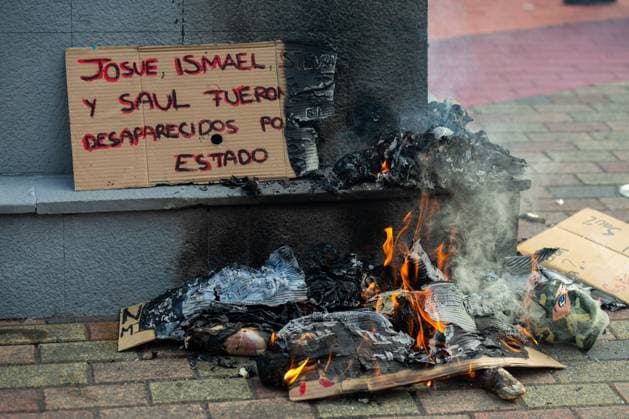 JOSUE, ISMAEL, STEVEN
Y SAUL FUERON
DESAPARECIDOS PO
ESTADO